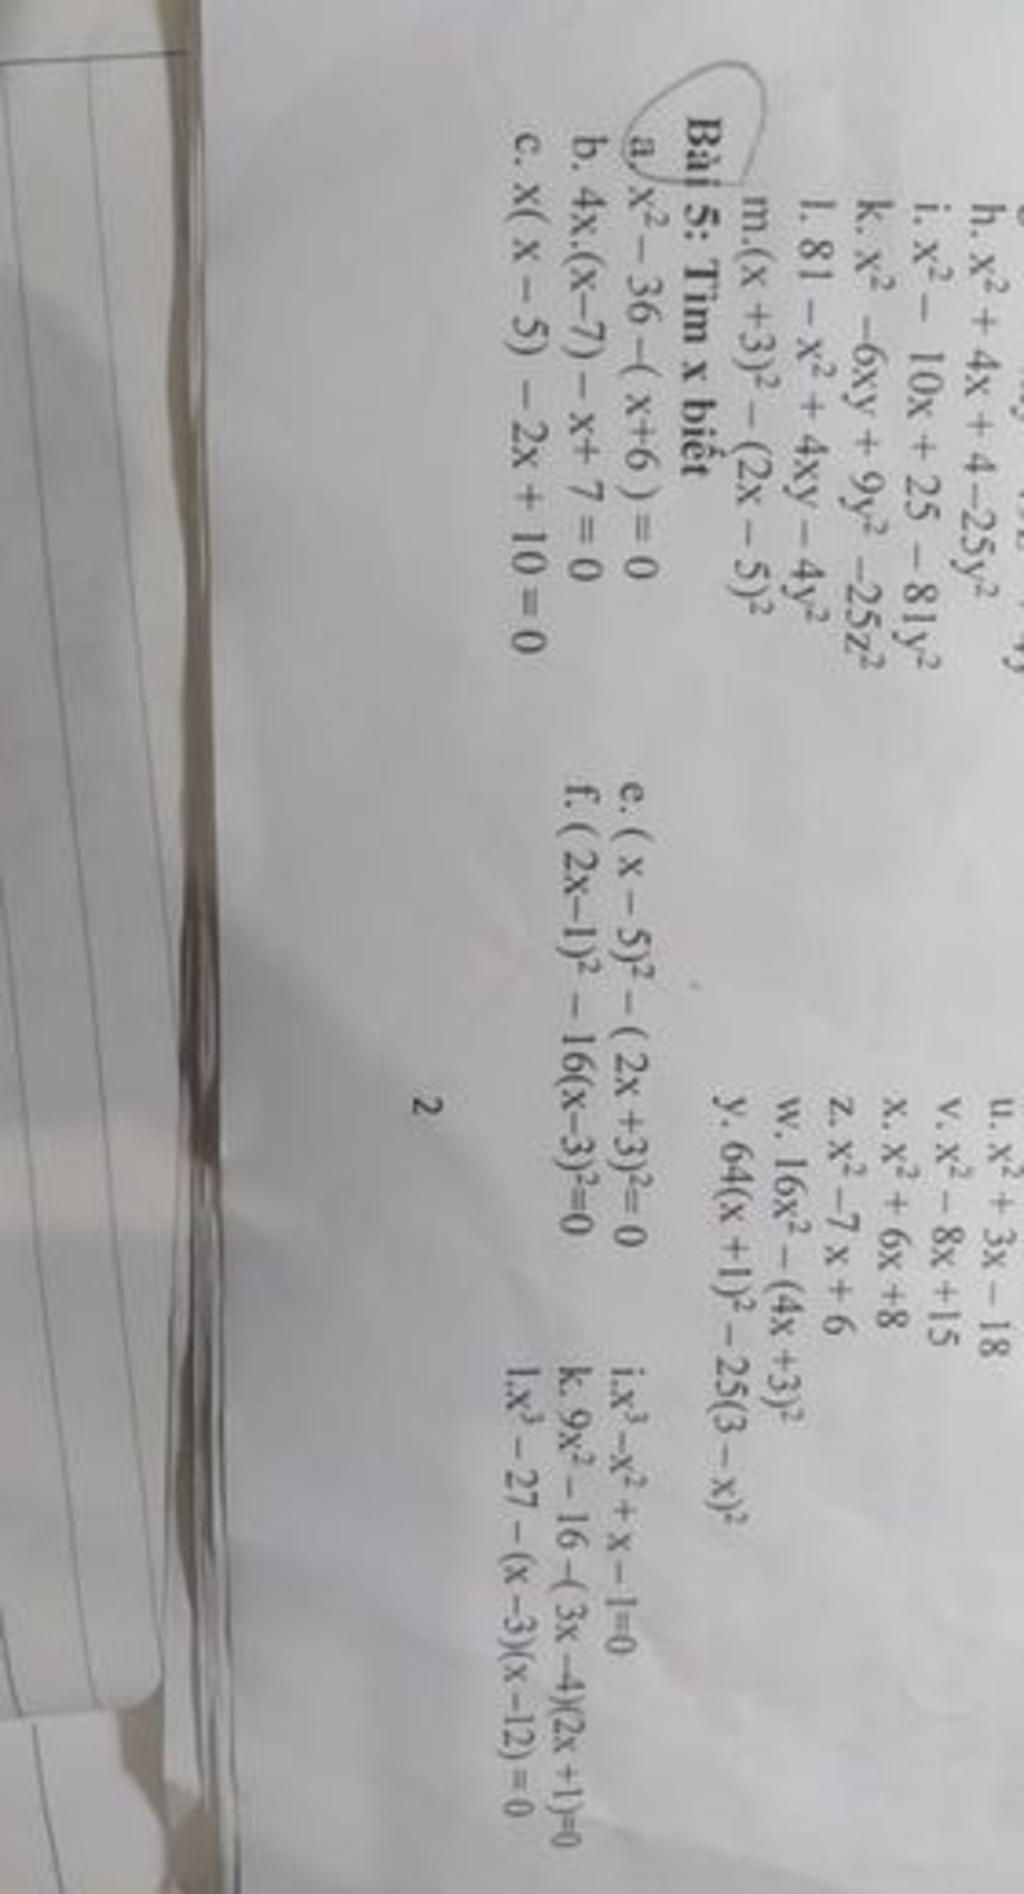 h. x² + 4x + 4 –25y²
i. x² – 10x + 25 – 81y²
k. x² –6xy + 9y² –25z²
l. 81 – x² + 4xy – 4y²
m.(x +3)² – (2x – 5)²
u. x² + 3x – 18
v. x² – 8x +15
x. x² + 6x +8
z. x² –7 x + 6
w. 16x² – (4x +3)²
y. 64(x +1)² – 25(3 – x)²
Bài 5: Tìm x biết
a. x² – 36 –( x+6 ) = 0
b. 4x.(x–7) – x+ 7 = 0
c. x( x – 5) – 2x + 10 = 0
e. ( x – 5)² – ( 2x +3)²= 0
f. ( 2x–1)² – 16(x–3)²=0
i.x³ –x² + x – 1=0
k. 9x² – 16 –( 3x –4)(2x +1)=0
l.x³ – 27 – (x –3)(x –12) = 0
2